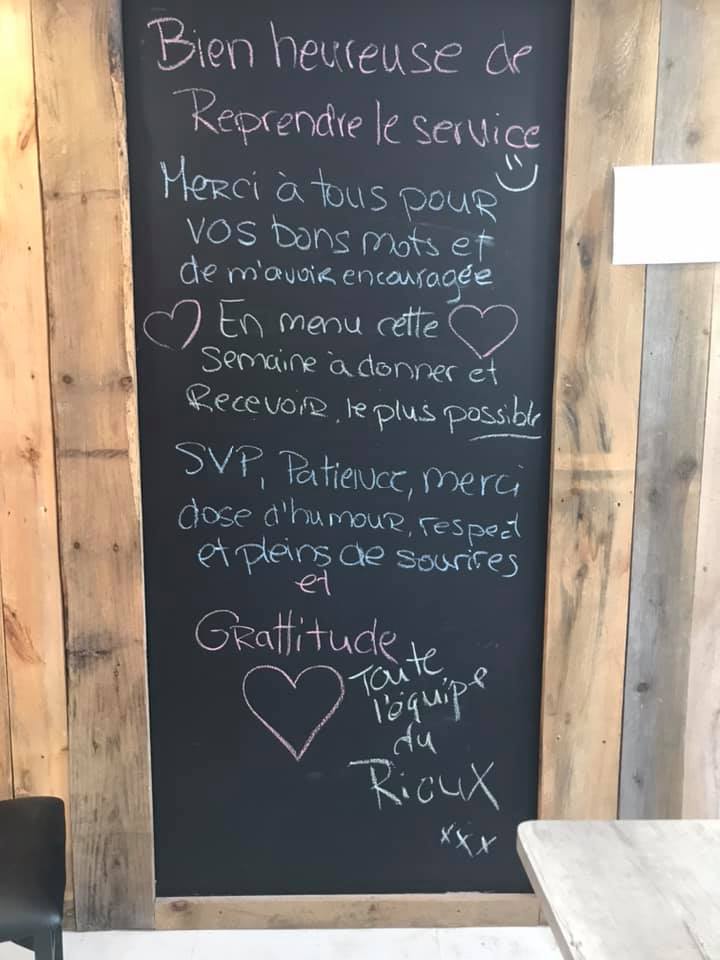 Bien heureuse de
Reprendre le service
Merci à tous pour
vos bons mots et
de m'avoir encouragée
En menu cette
semaine à donner et
Recevoir, le plus possible
SVP, Patience, merci
dose d'humour, respect
et pleins de sourires
et
Grattitude
Toute
l'équipe
du
Rioux
xxx